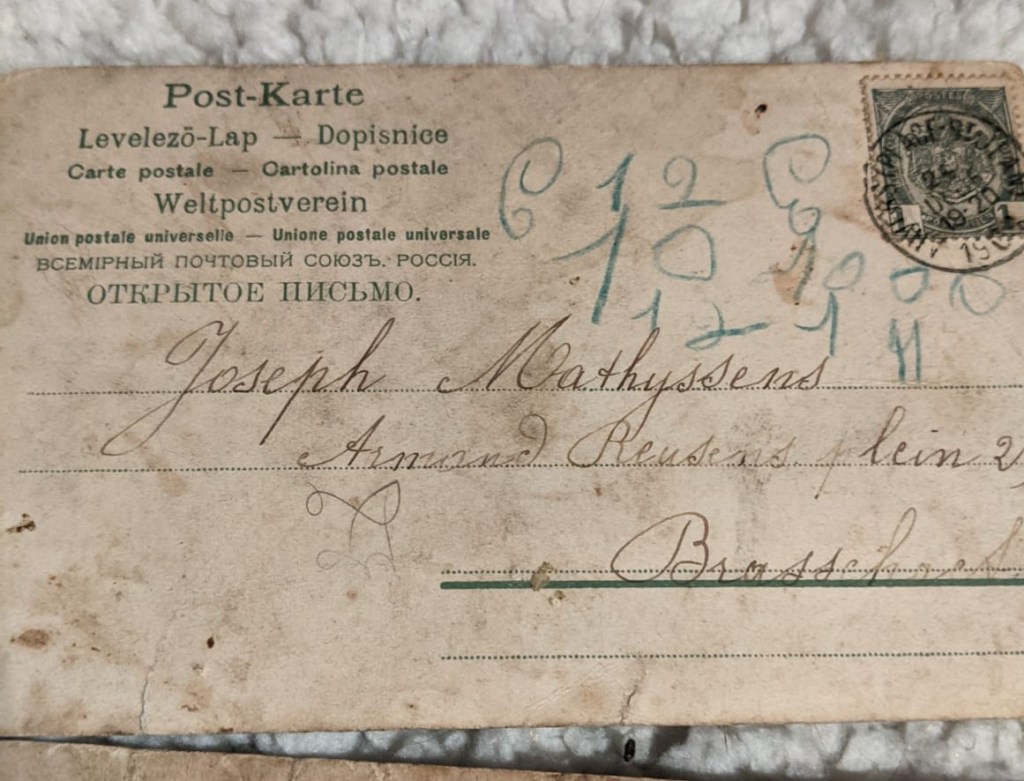 Post-Karte
Levelezō-Lap — Dopisnice
Carte postale — Cartolina postale
Weltpostverein
Union postale universelle — Unione postale universale
ВСЕМІРНЫЙ ПОЧТОВЫЙ СОЮЗЪ. РОССІЯ.
ОТКРЫТОЕ ПИСЬМО.
12
10
1000
12 1 11
19-20
Joseph Mathyssens
Armand Reusens plein 2,
Brasschaet